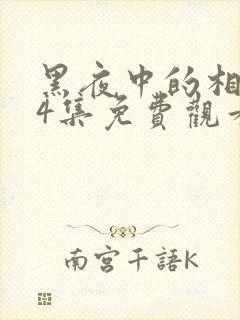 黑夜中的相
4集免費觀看
南宮千語K